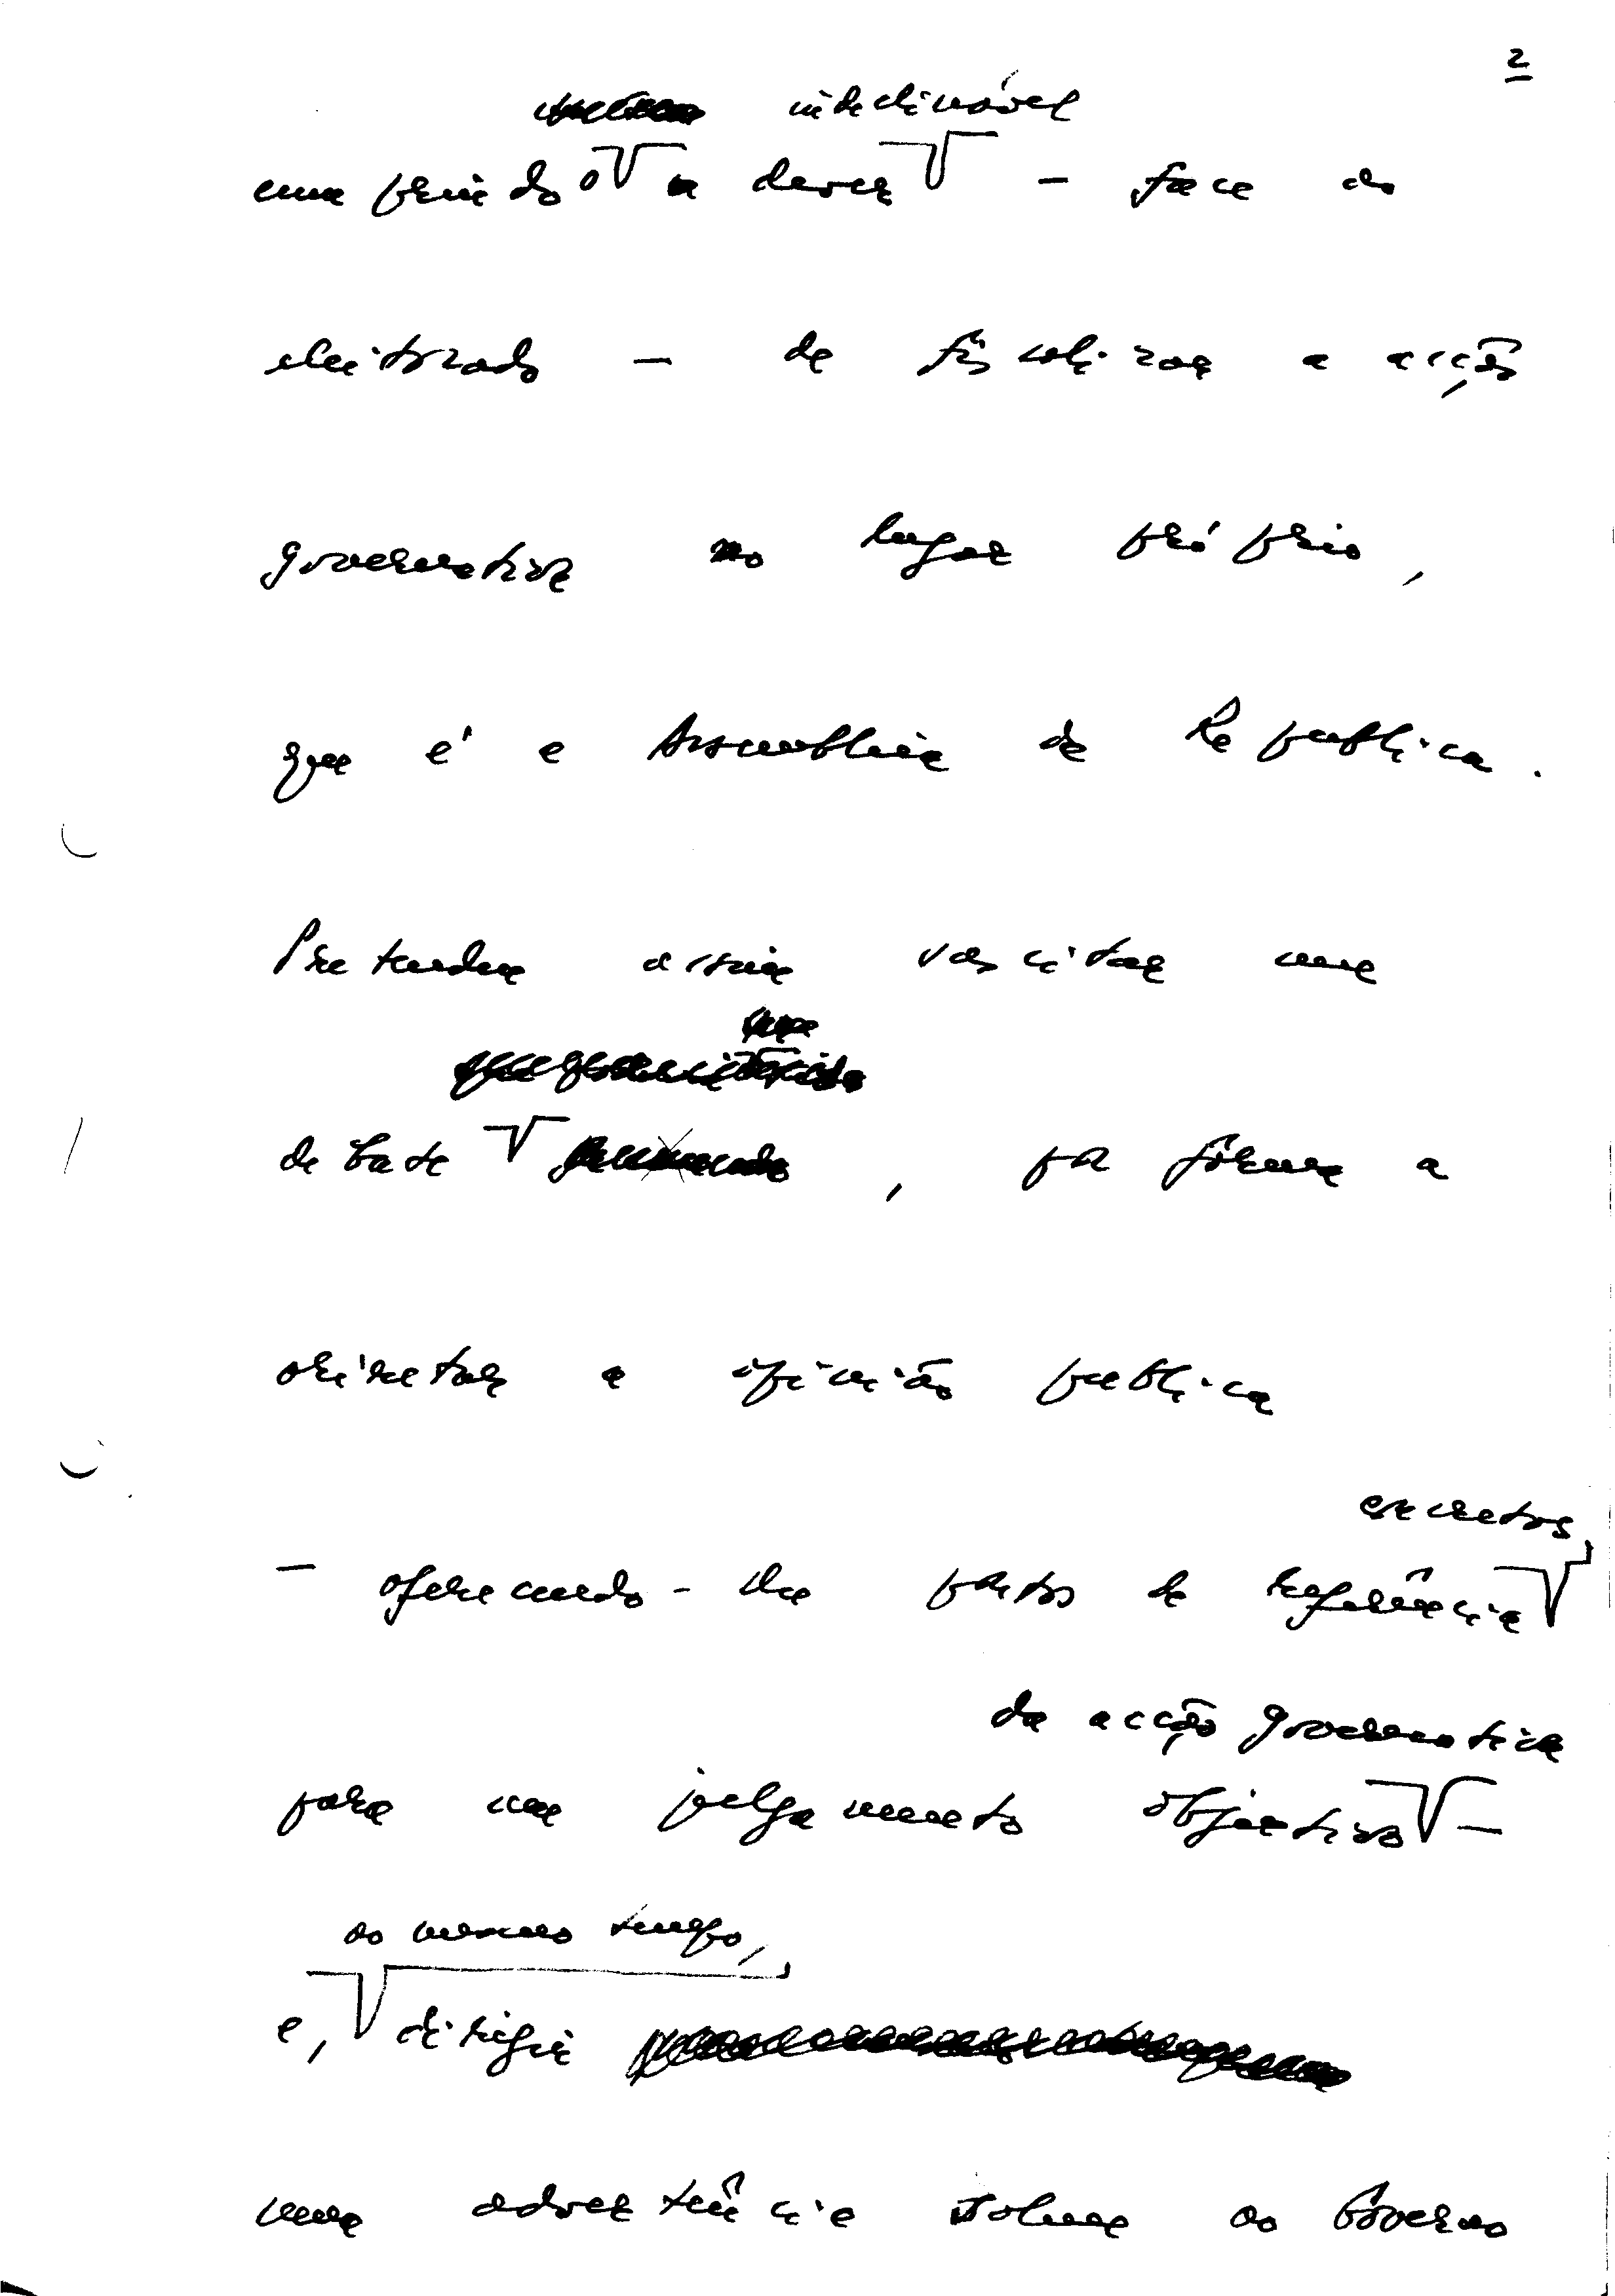 2
indeclinável
cumprindo o dever - face ao
eleitorado - de fiscalizar a acção
governativa no lugar próprio,
que é a Assembleia da República.
Pretendem assim suscitar um
debate , por forma a
orientar a opinião publica
concretos,
- oferecendo-lhe pontos de referência
da acção governativa
para um julgamento objectivo -
ao mesmo tempo,
e, dirigir
uma advertência solene ao Governo